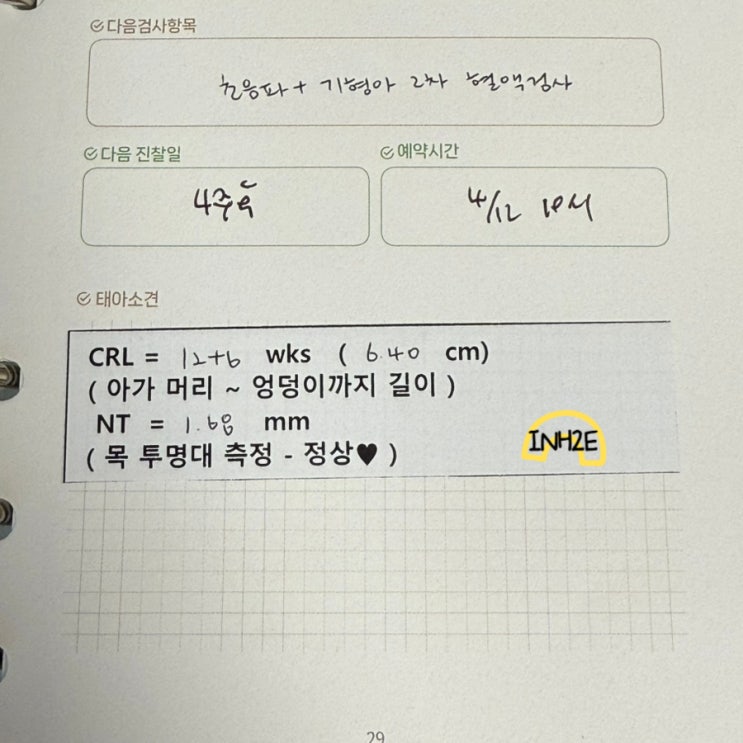 다음검사항목
초음파 + 기형아 2차 혈액검사
다음 진찰일
예약시간
4주후
4/12 10시
태아소견
CRL = 12+6 wks ( 6.40 cm)
( 아가 머리 ~ 엉덩이까지 길이 )
NT = 1.68 mm
( 목 투명대 측정 - 정상♥ )
INH2E
29